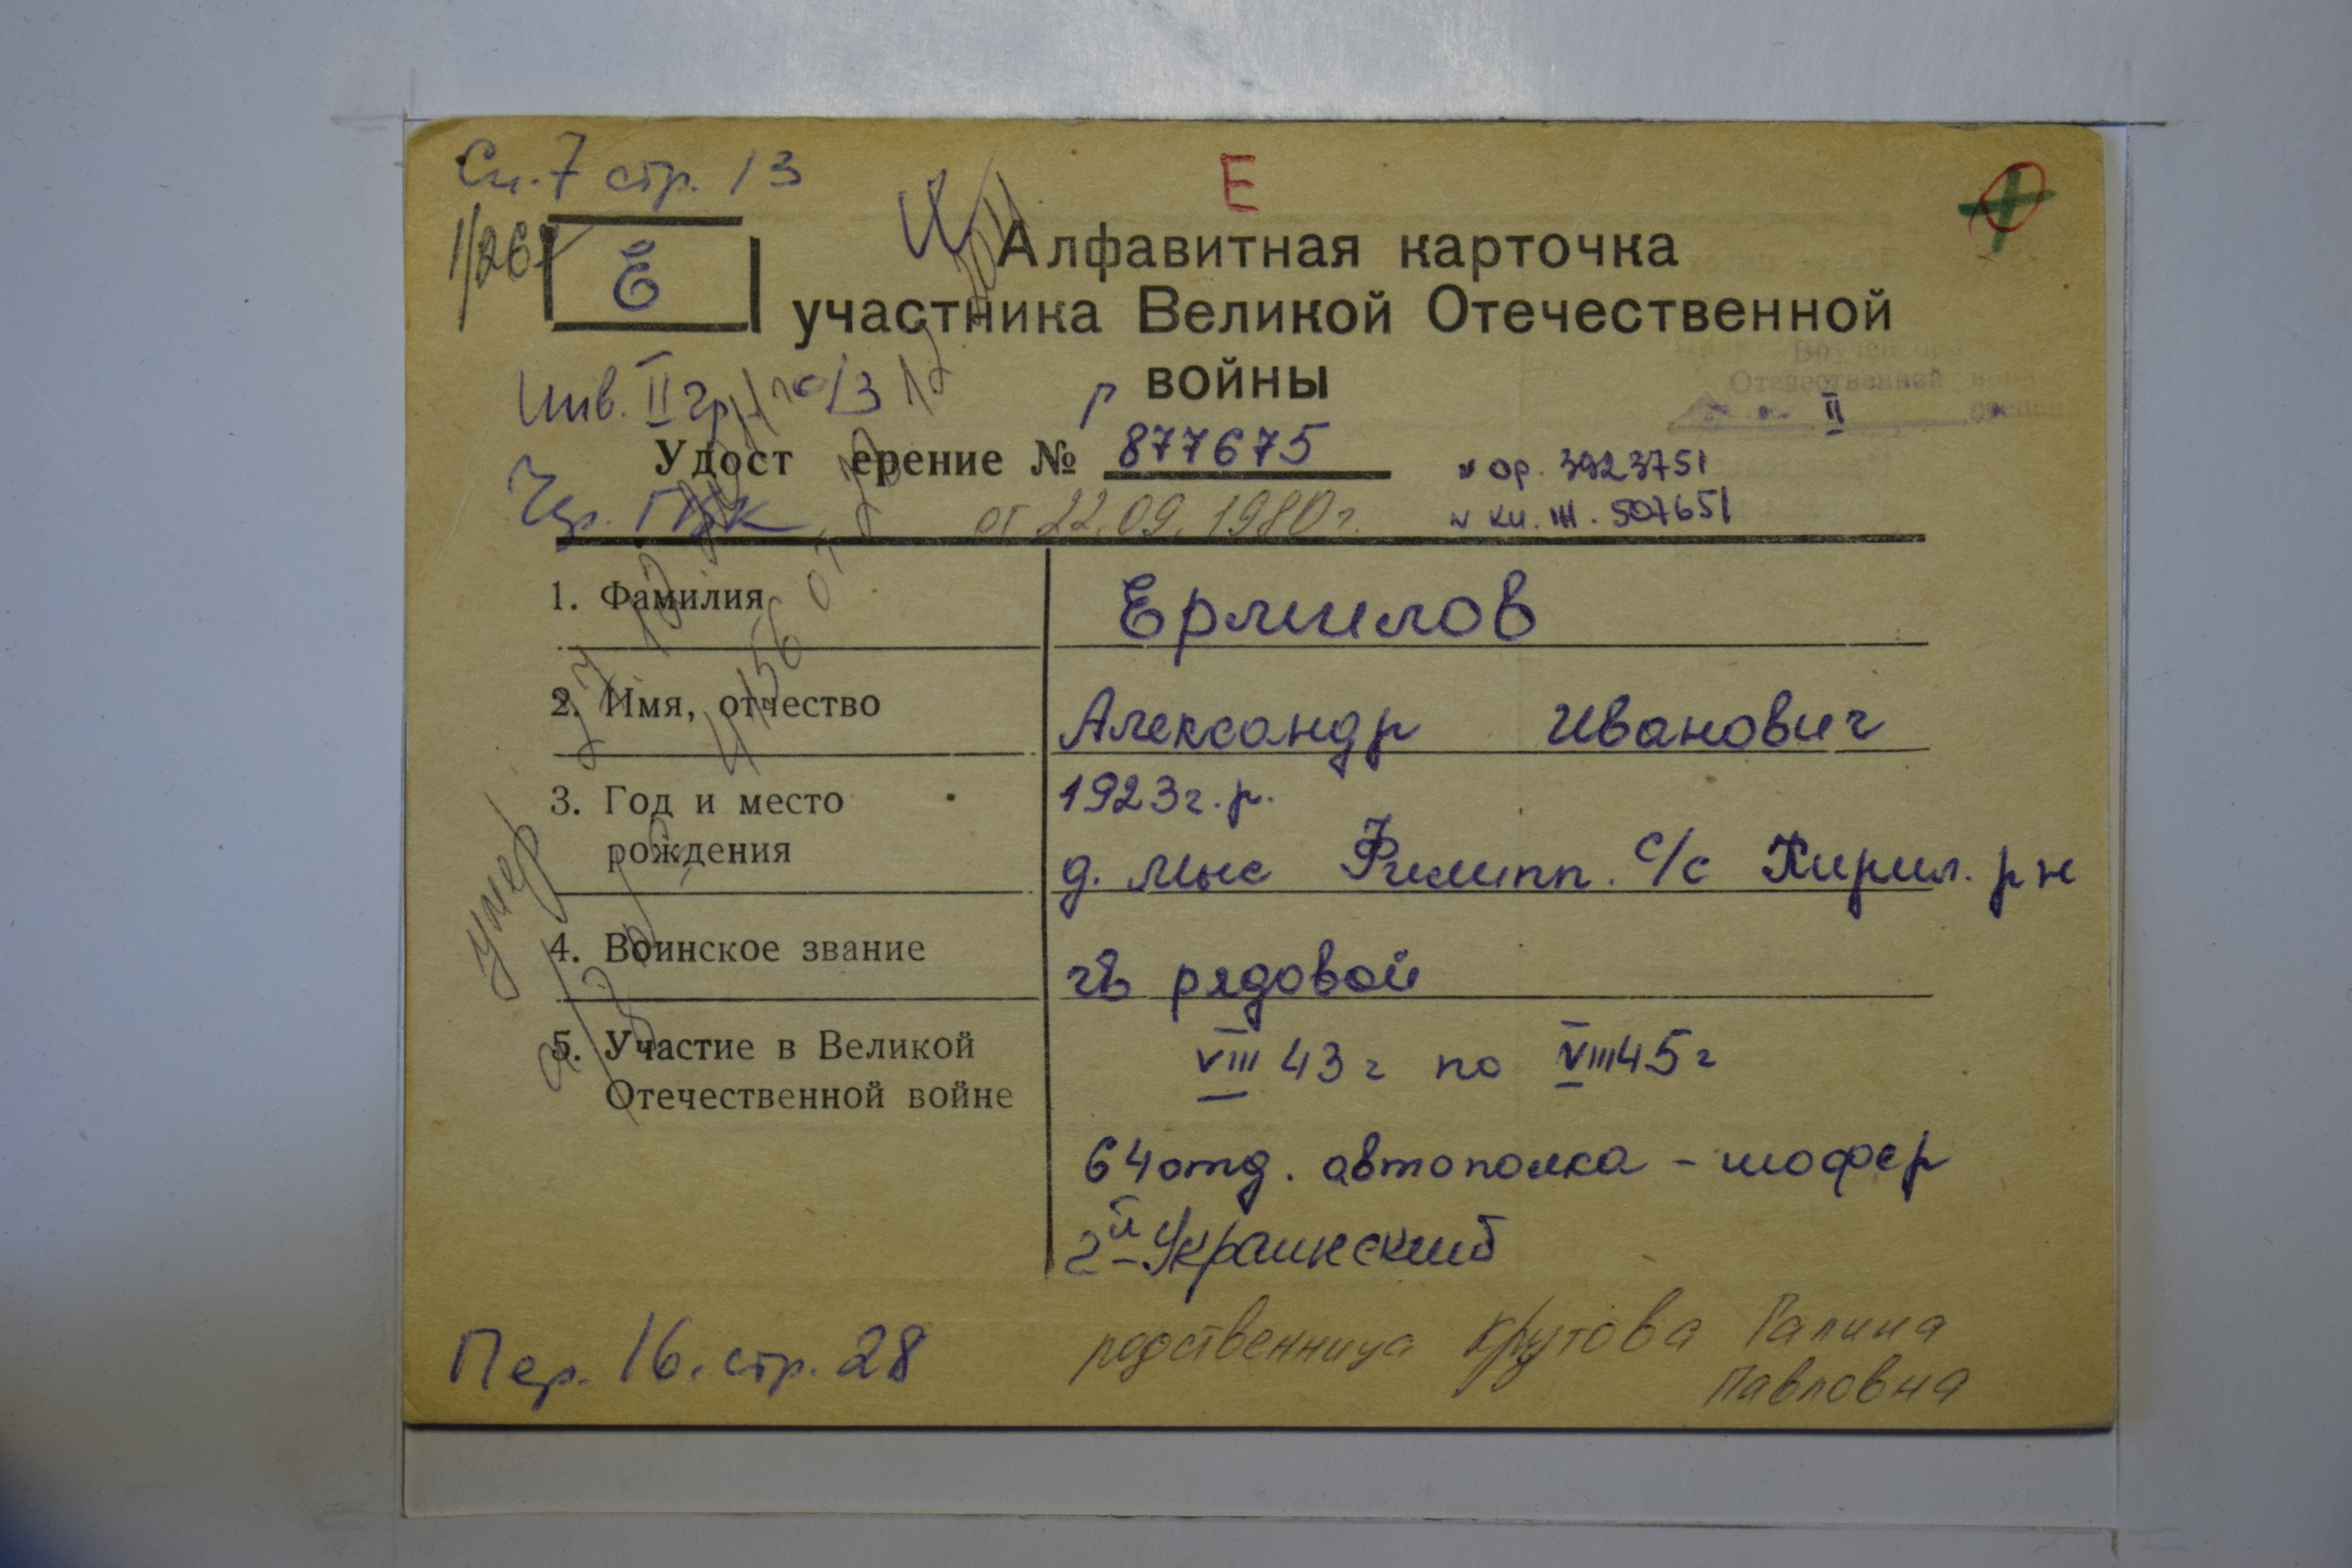 Сп. 7 стр. 13
Е
1/267
Е
И
Алфавитная карточка
участника Великой Отечественной
войны
Вручен орден
Отечественной войны
II степени
Инв. II гр.
Р
Удост ерение № 877675
№ ор. 3923751
от 22.09.1980г.
№ кн. III. 507651
1. Фамилия
Ермилов
2. Имя, отчество
Александр Иванович
3. Год и место
рождения
1923г.р.
д. Мыс Филипп. с/с Кирил. р н
умер
4. Воинское звание
гв рядовой
5. Участие в Великой
Отечественной войне
VIII 43 г по VIII 45 г
64 отд. автополка - шофер
2й-Украинский
Пер. 16. стр. 28
родственница Крутова Галина
Павловна